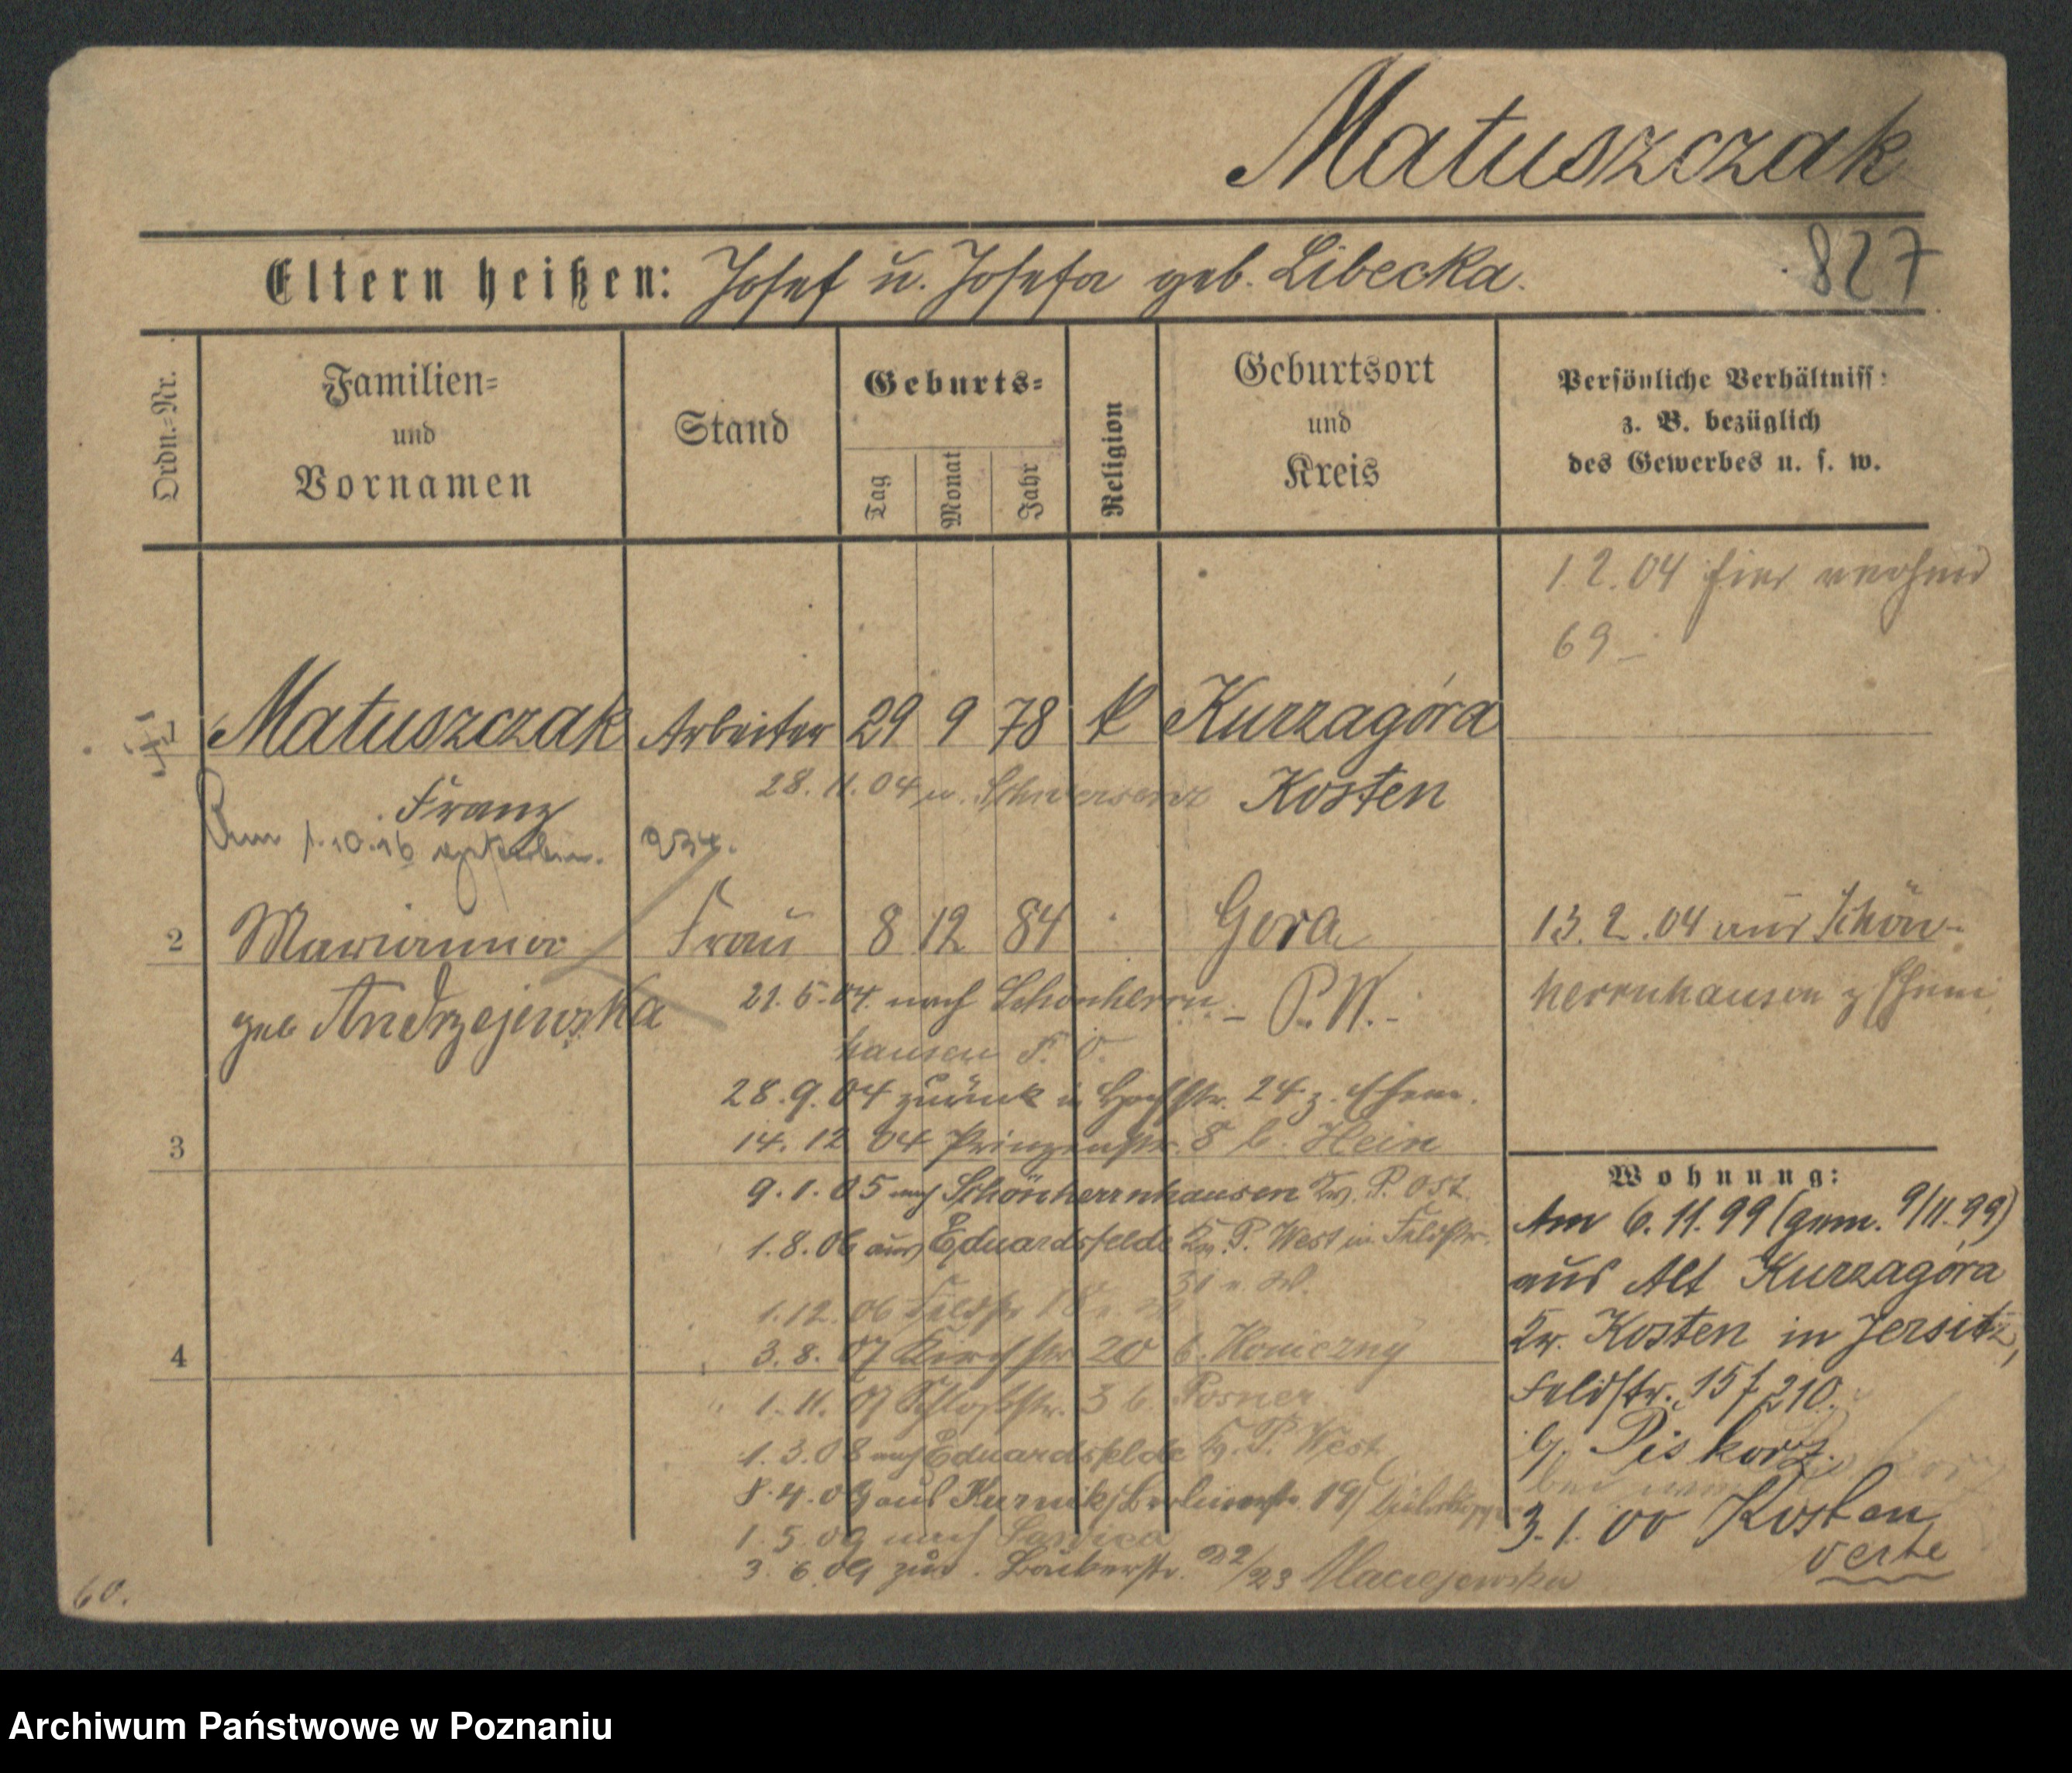 Matuszczak
827
Eltern heißen: Josef u. Josefa geb. Libecka.
Ordn.=Nr.
Familien=
und
Vornamen
Stand
Geburts=
Tag
Monat
Jahr
Religion
Geburtsort
und
Kreis
Persönliche Verhältniss
z. B. bezüglich
des Gewerbes u. s. w.
1.2.04 hier
69
1 Matuszczak Arbeiter 29 9 78 k Kurzagóra
Franz 28.11.04 n. Schwersenz Kosten
Am 1.10.16 gestorben. 234.
2 Marianna Frau 8 12 84 Gora 13.2.04 aus Schön-
geb Andrzejewska 21.5.04 nach Schönherrn- P.W.- herrnhausen z Ehem
hausen P. O.
28.9.04 zurück in Hochstr. 24 z. Ehem.
3 14.12.04 Prinzenstr. 8 b. Hein
9.1.05 nach Schönherrnhausen Kr. P. Ost
1.8.06 aus Eduardsfelde Kr. P. West in Feldstr.
31 v. W.
1.12.06 Feldstr
4 3.8.07 Kirchstr 20 b. Koniczny
1.11.07 Schloßstr. 3 b. Posner
1.3.08 nach Eduardsfelde Kr. P. West
8.4.09 aus Kurnik Berlinerstr. 19
1.5.09 nach
3.6.09 zur. 22/23 Maciejewska
Wohnung:
Am 6.11.99 (gem. 9/11.99)
aus Alt Kurzagóra
Kr. Kosten in Jersitz,
Feldstr. 15 f. 210.
b. Piskorz.
3.1.00 Kosten
verte
60.
Archiwum Państwowe w Poznaniu